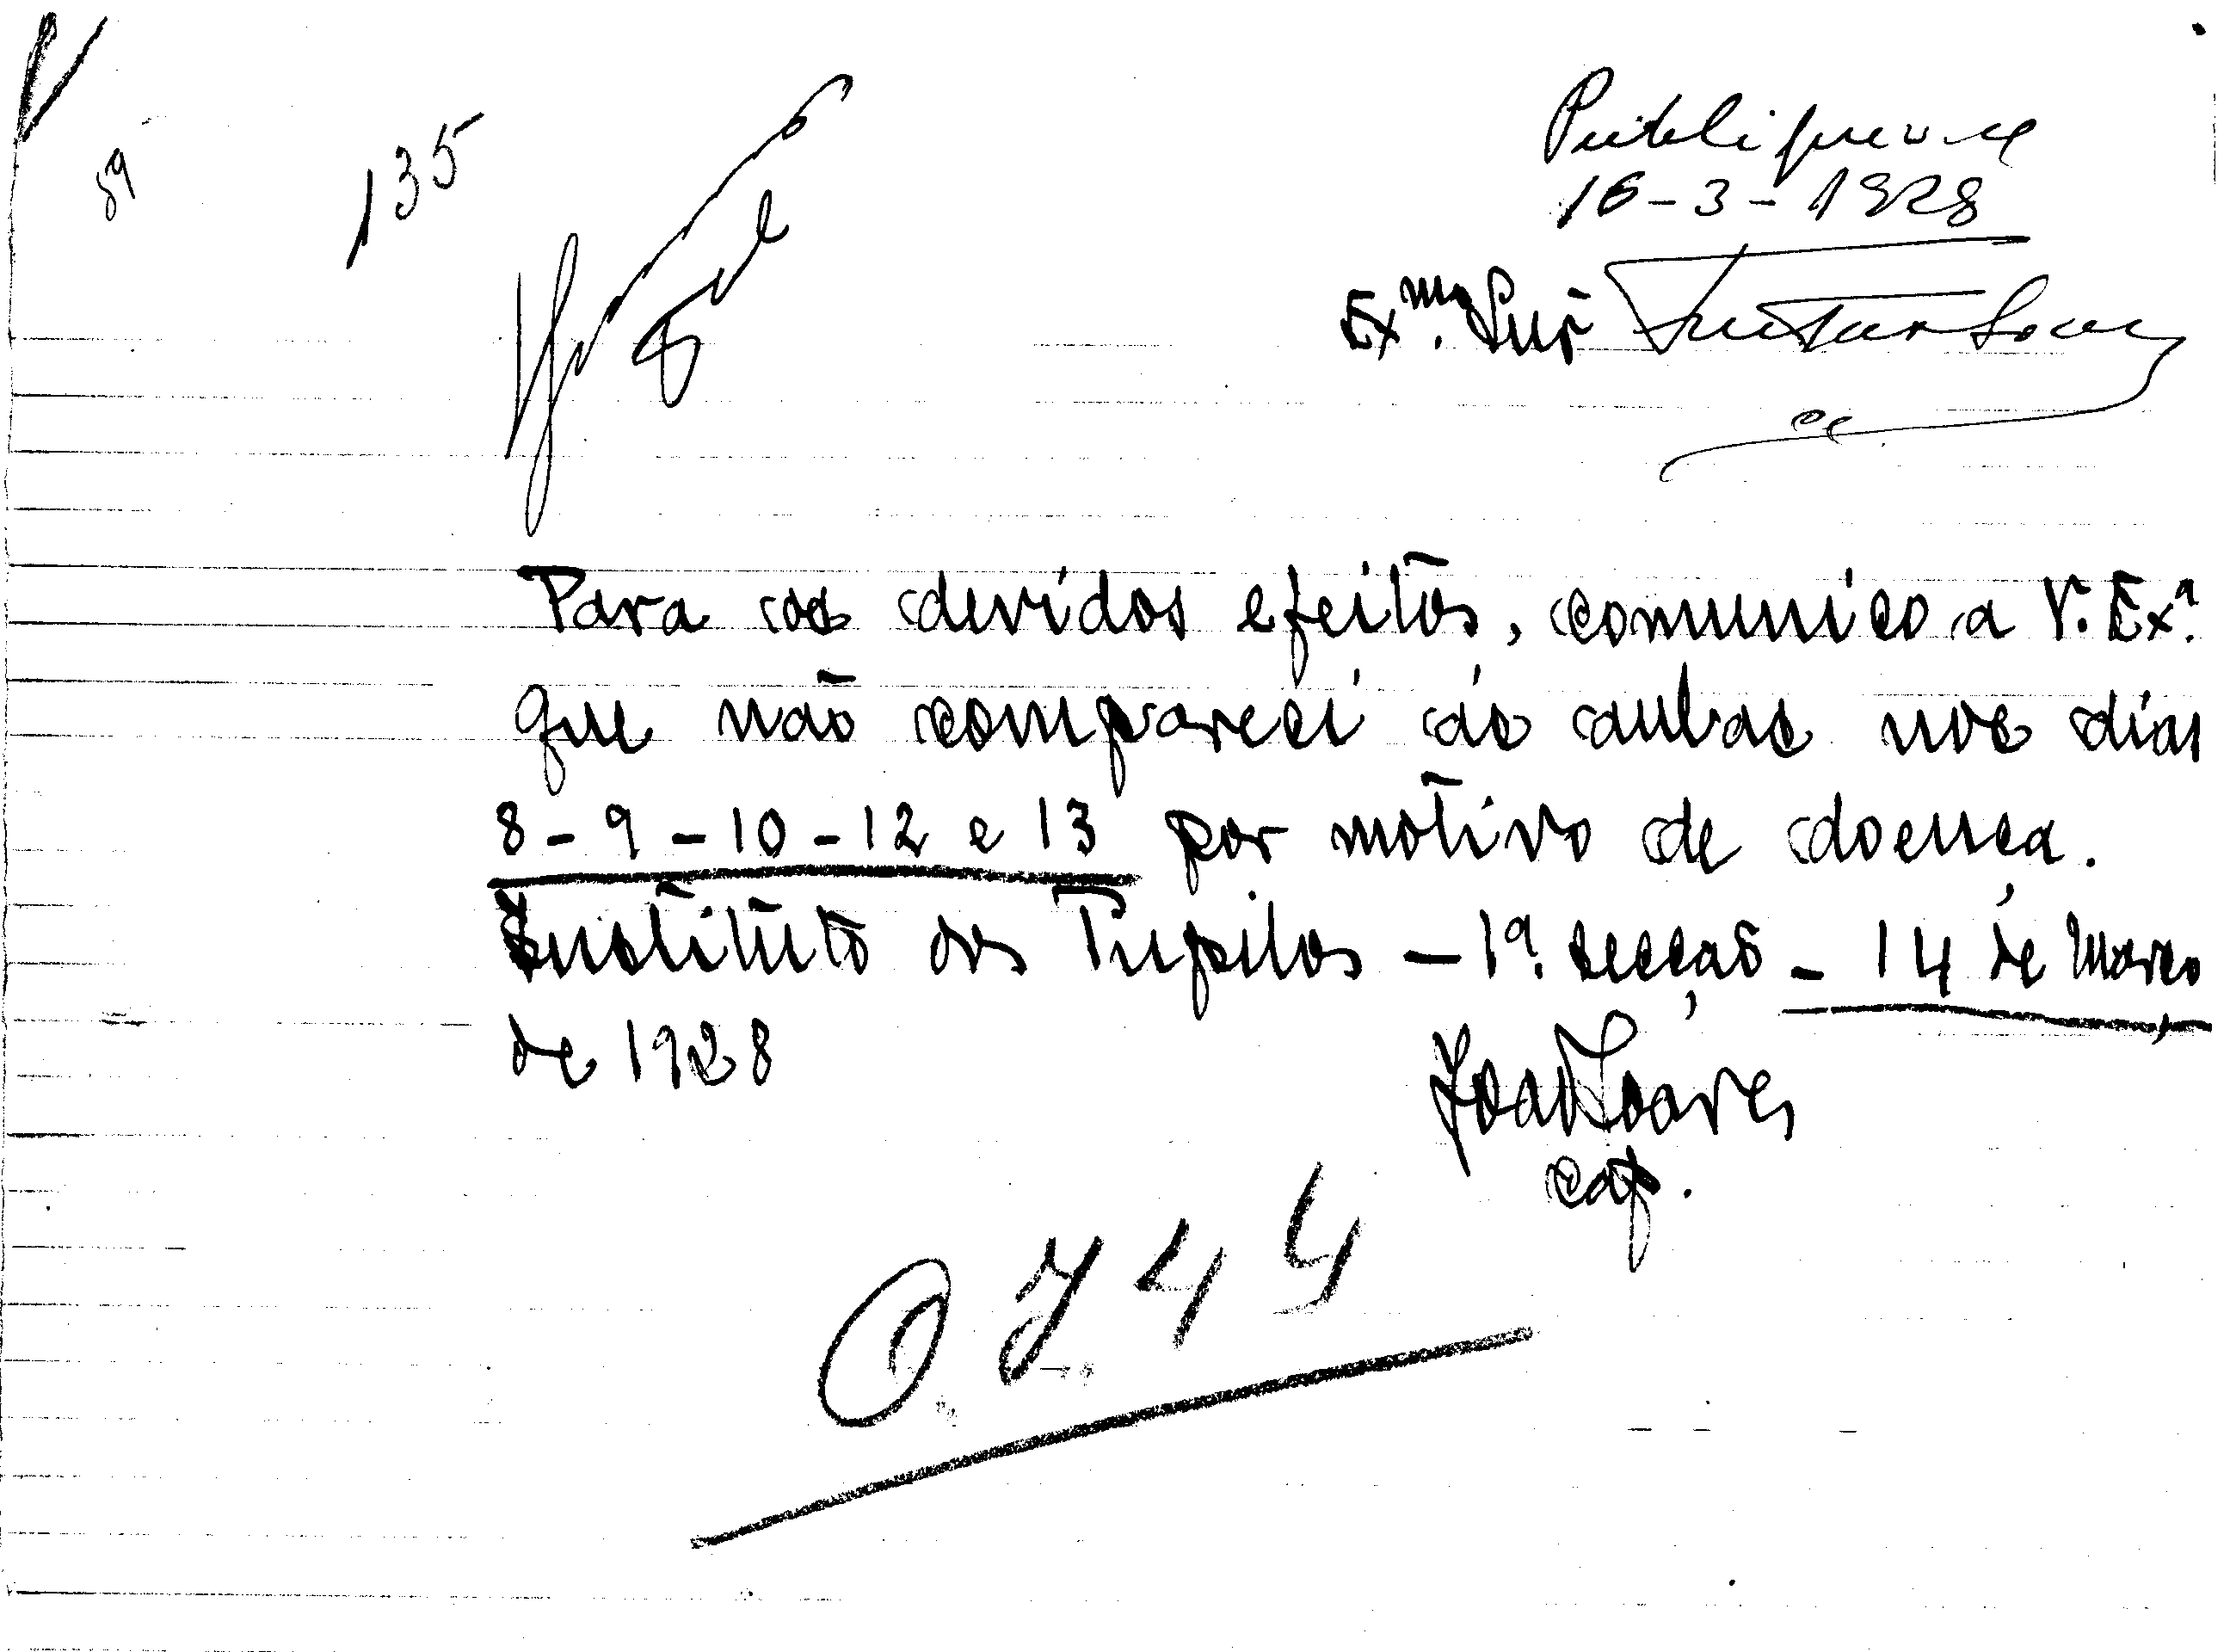 89
135
Publique-se
16-3-1928
Exmo. Snr
Para os devidos efeitos, comunico a V. Exª.
que não compareci ás aulas nos dias
8-9-10-12 e 13 por motivo de doença.
Instituto dos Pupilos - 1ª. secção - 14 de Março
de 1928
João Soares
cap.
O 744